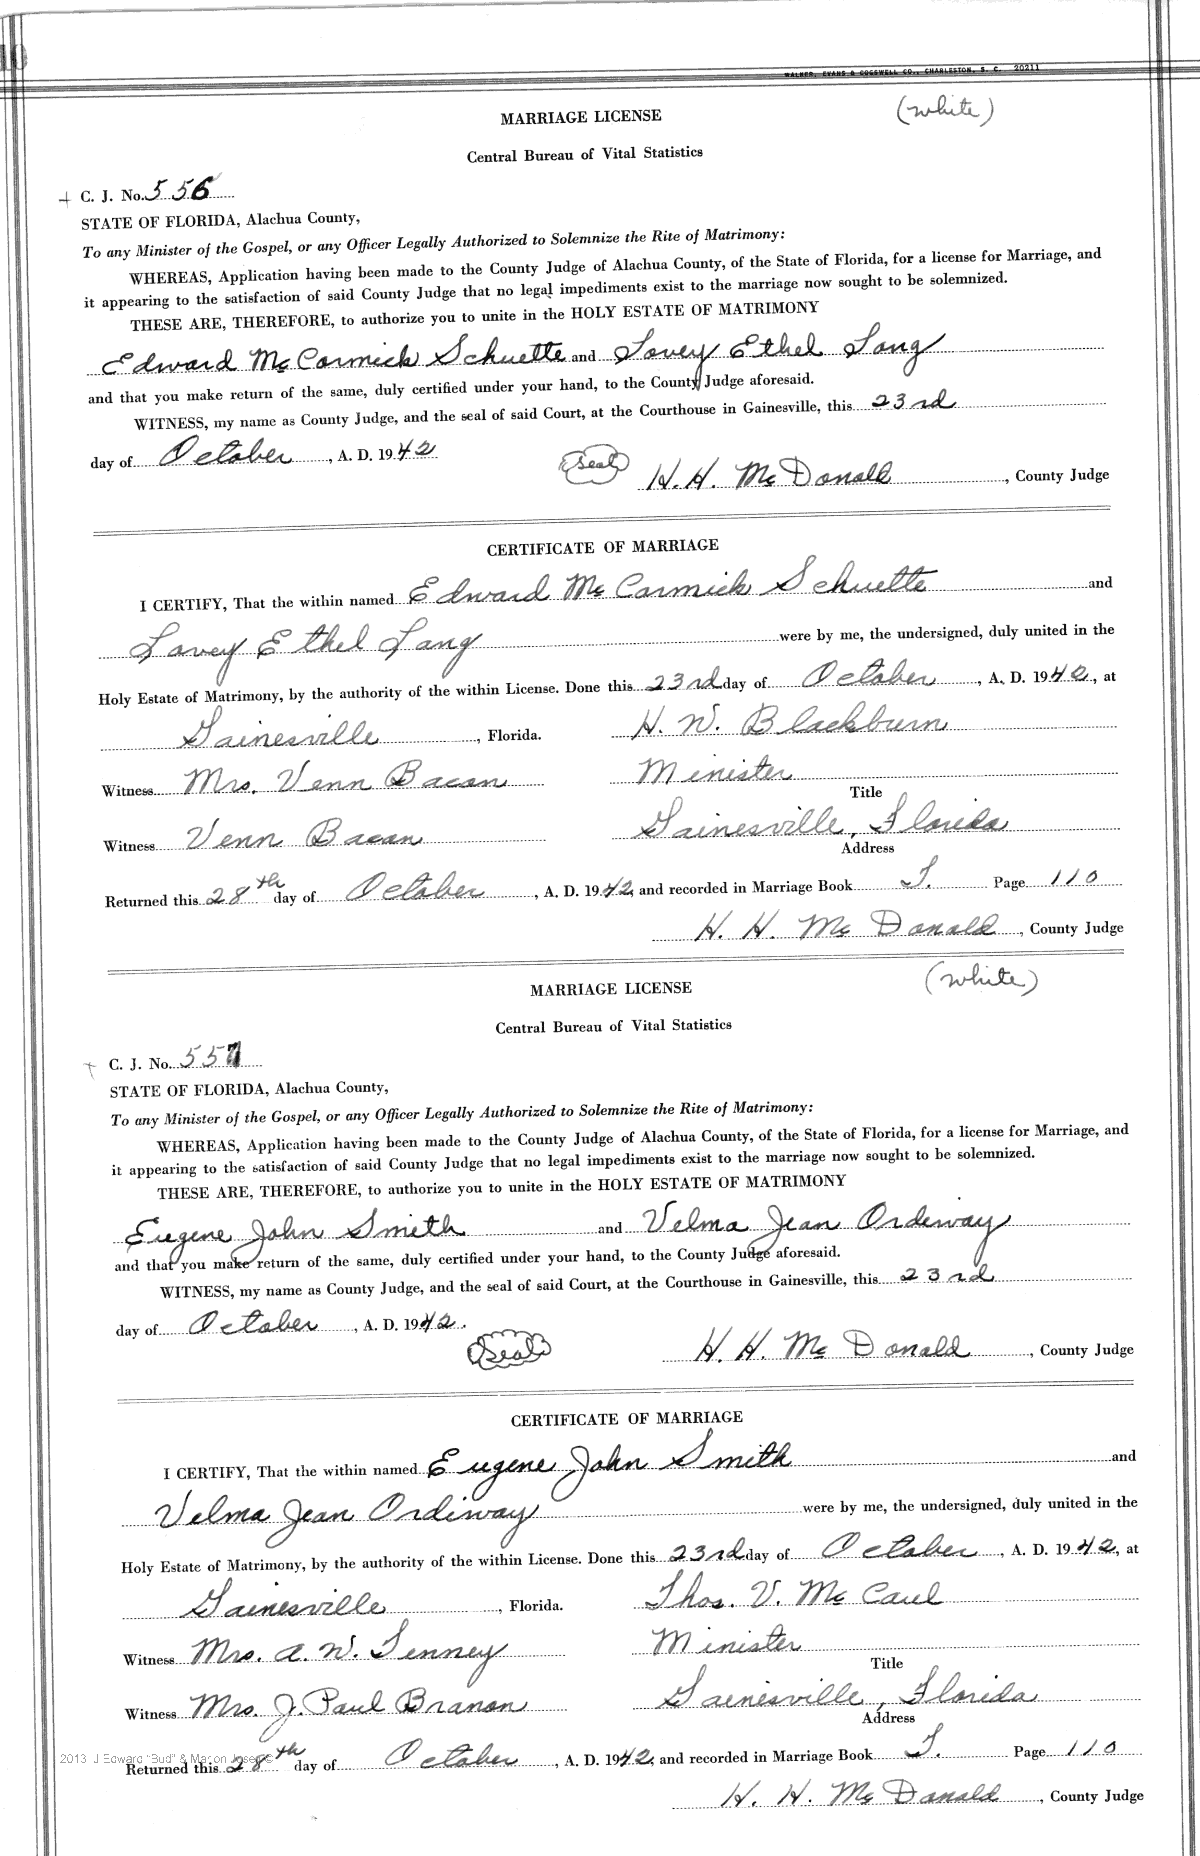 WALKER, EVANS & COGSWELL CO., CHARLESTON, S. C. 20211
(white)
MARRIAGE LICENSE
Central Bureau of Vital Statistics
C. J. No. 556
STATE OF FLORIDA, Alachua County,
To any Minister of the Gospel, or any Officer Legally Authorized to Solemnize the Rite of Matrimony:
WHEREAS, Application having been made to the County Judge of Alachua County, of the State of Florida, for a license for Marriage, and
it appearing to the satisfaction of said County Judge that no legal impediments exist to the marriage now sought to be solemnized.
THESE ARE, THEREFORE, to authorize you to unite in the HOLY ESTATE OF MATRIMONY
Edward McCormick Schuette and Lovey Ethel Long
and that you make return of the same, duly certified under your hand, to the County Judge aforesaid.
WITNESS, my name as County Judge, and the seal of said Court, at the Courthouse in Gainesville, this 23rd
day of October, A. D. 1942
(Seal) H. H. McDonald, County Judge
CERTIFICATE OF MARRIAGE
I CERTIFY, That the within named Edward McCormick Schuette and
Lovey Ethel Lang were by me, the undersigned, duly united in the
Holy Estate of Matrimony, by the authority of the within License. Done this 23rd day of October, A. D. 1942, at
Gainesville, Florida. H. W. Blackburn
Witness Mrs. Venn Bacon Minister
Title
Witness Venn Bacan Gainesville, Florida
Address
Returned this 28th day of October, A. D. 1942 and recorded in Marriage Book T. Page 110
H. H. McDonald, County Judge
(white)
MARRIAGE LICENSE
Central Bureau of Vital Statistics
C. J. No. 557
STATE OF FLORIDA, Alachua County,
To any Minister of the Gospel, or any Officer Legally Authorized to Solemnize the Rite of Matrimony:
WHEREAS, Application having been made to the County Judge of Alachua County, of the State of Florida, for a license for Marriage, and
it appearing to the satisfaction of said County Judge that no legal impediments exist to the marriage now sought to be solemnized.
THESE ARE, THEREFORE, to authorize you to unite in the HOLY ESTATE OF MATRIMONY
Eugene John Smith and Velma Jean Ordiway
and that you make return of the same, duly certified under your hand, to the County Judge aforesaid.
WITNESS, my name as County Judge, and the seal of said Court, at the Courthouse in Gainesville, this 23rd
day of October, A. D. 1942.
(Seal) H. H. McDonald, County Judge
CERTIFICATE OF MARRIAGE
I CERTIFY, That the within named Eugene John Smith and
Velma Jean Ordiway were by me, the undersigned, duly united in the
Holy Estate of Matrimony, by the authority of the within License. Done this 23rd day of October, A. D. 1942, at
Gainesville, Florida. Thos. V. McCaul
Witness Mrs. A. W. Tenney Minister
Title
Witness Mrs. J. Paul Branon Gainesville, Florida
Address
2013 J Edward "Bud" & Marion
Returned this 28th day of October, A. D. 1942, and recorded in Marriage Book T. Page 110
H. H. McDonald, County Judge